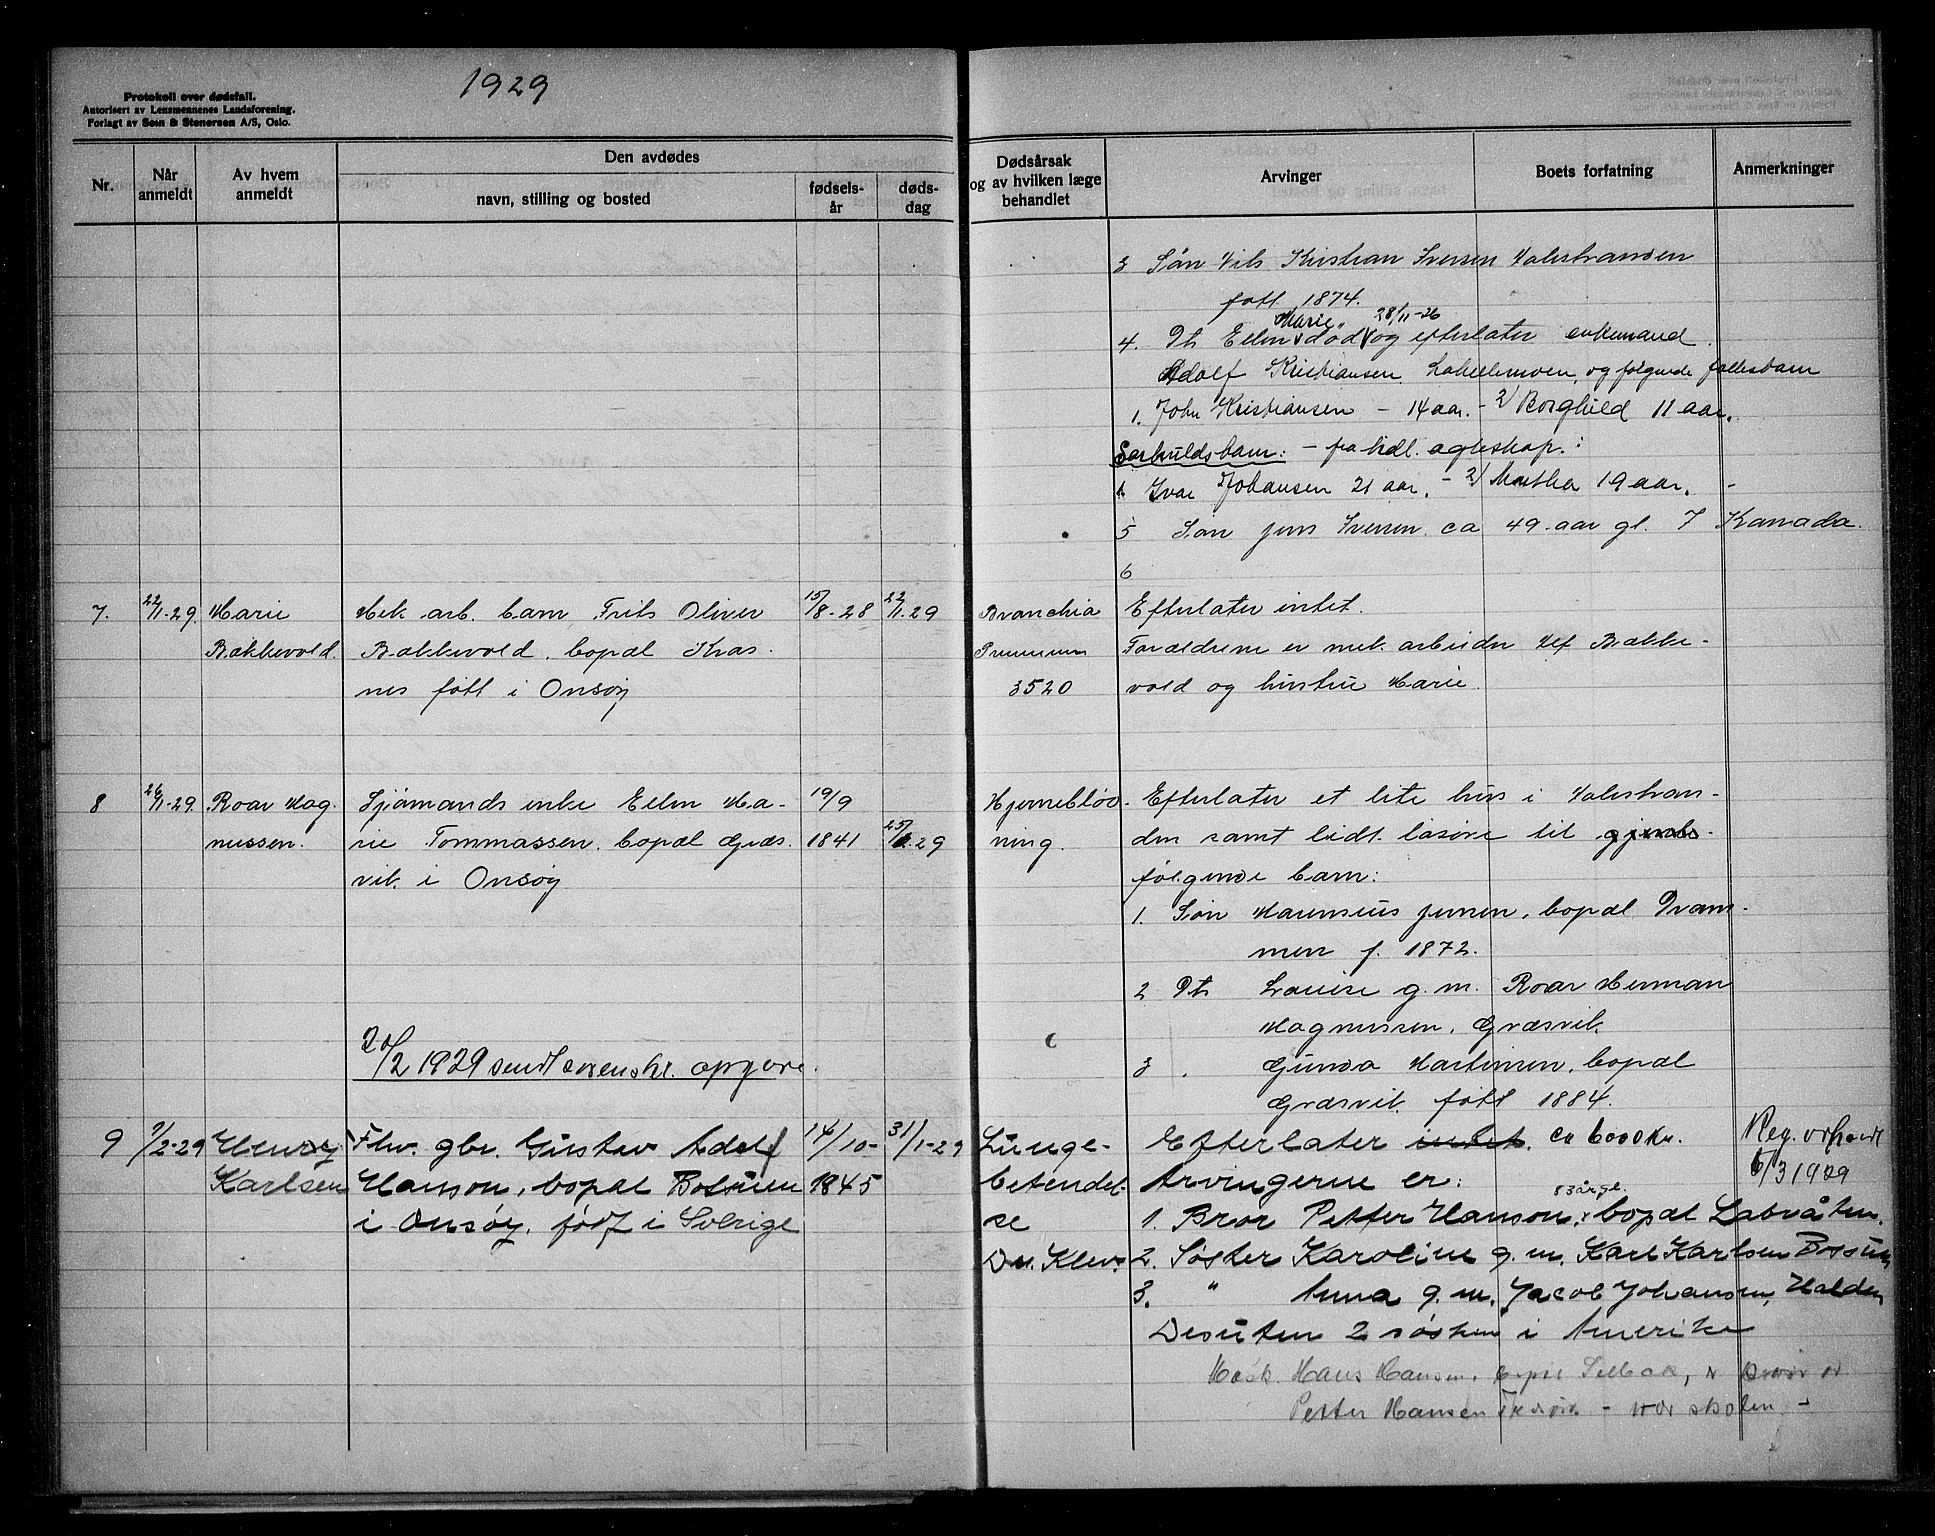 1929
Protokoll over dødsfall.
Autorisert av Lensmennenes Landsforening.
Forlagt av Sem & Stenersen A/S, Oslo.
Nr.
Når anmeldt
Av hvem anmeldt
Den avdødes
navn, stilling og bosted
fødselsår
dødsdag
Dødsårsak og av hvilken læge behandlet
Arvinger
Boets forfatning
Anmerkninger
3 Søn Nils Kristian Iversen Valestranden
født 1874.
Marie 28/11-26
4. Dt. Ellen død og efterlater enkemand
Adolf Kristiansen, og følgende fellesbarn
1. John Kristiansen - 14 aar. - 2/ Borghild 11 aar.
Særkuldsbarn: - fra tidl. ægteskap:
1 Ivar Johansen 21 aar. - 2/ Martha 19 aar. -
5 Søn Jens Iversen ca 49 aar gl. I Kanada.
6
7. 22/1-29. Marie Mek. arb. barn Frits Oliver 15/8-28 22/1-29 Bronchia Efterlater intet.
Bækkevold. Bækkevold. bopæl Kras Forældrene er mek. arbeider Bække-
nes født i Onsøy 3520 vold og hustru Marie.
8 26/1-29. Roar Mag Sjømands enke Ellen Ma- 19/9 Hjerneblød- Efterlater et lite hus i Valestran-
nussen. rie Tommassen. bopæl Græs. 1841 25/1.29 ning. den samt lidt løsøre til
vik. i Onsøy følgende barn:
1. Søn Marensius Jensen, bopæl Dram-
men f. 1872.
2 Dt. Louise g. m. Roar Herman
Magnussen. Græsvik.
3 . Gunda Martinsen. bopæl
Græsvik. født 1884.
20/2 1929 sendt svensk. opgave.
9 1/2-29 Henry Fhv. gbr. Gustav Adolf 14/10- 31/1-29 Lunge- Efterlater intet. ca 6000 Kr. Reg. 
Karlsen Hanson, bopæl 1845 betendel- Arvingerne er: 6/3 1929
i Onsøy. født i Sverige se 1. Bror Petter Hanson, 83 år gl. bopæl
Dr. Klev. 2. Søster Karoline g. m. Karl Karlsen
3. " Anna g. m. Jacob Johansen, Halden
Desuten 2 søsken i Amerika
Hans Hansen, bopæl Selbak,
Petter Hansen - ved skolen. -